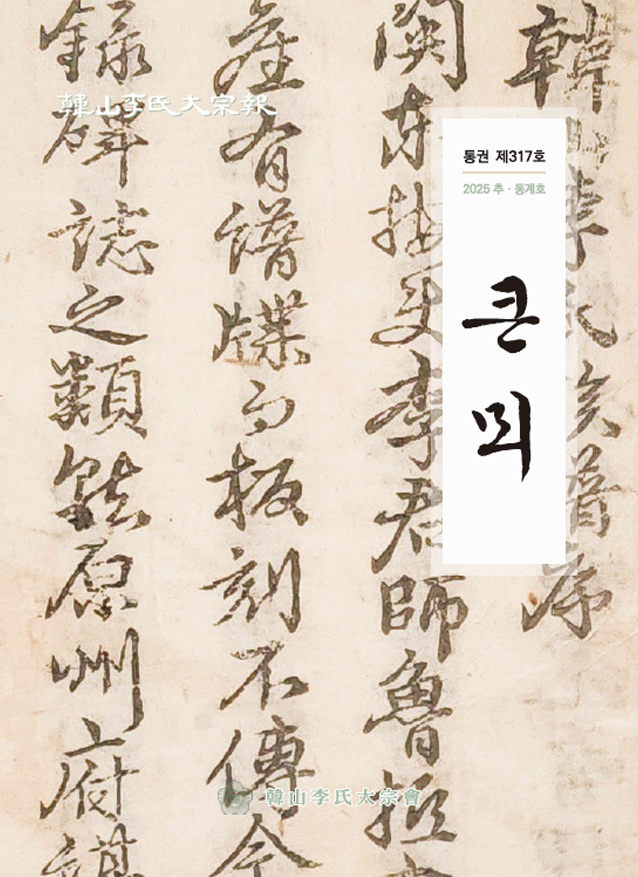 韓山李氏大宗報
통권 제317호
2025 추 · 동계호
큰
뫼
韓山李氏族譜序
關東按吏李君師魯授
産有譜牒而板刻不傳今
錄碑誌之類然原州府
韓山李氏大宗會